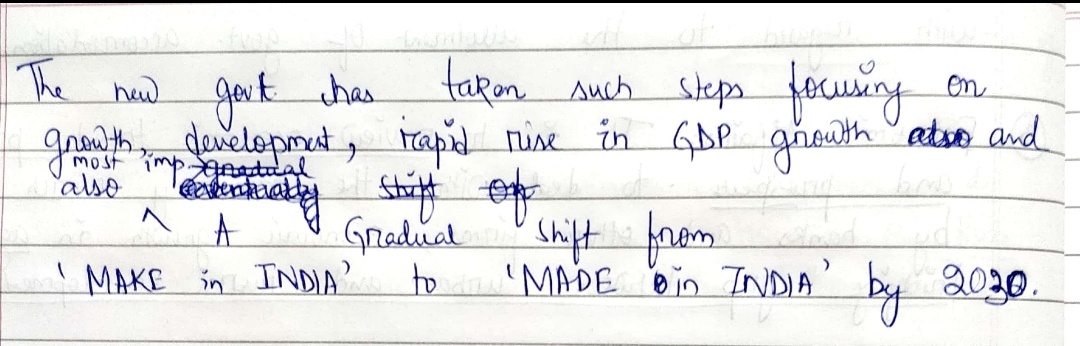 The new govt has taken such steps focusing on
growth, development, rapid rise in GDP growth and
also most imp
A Gradual shift from
'MAKE in INDIA' to 'MADE in INDIA' by 2030.